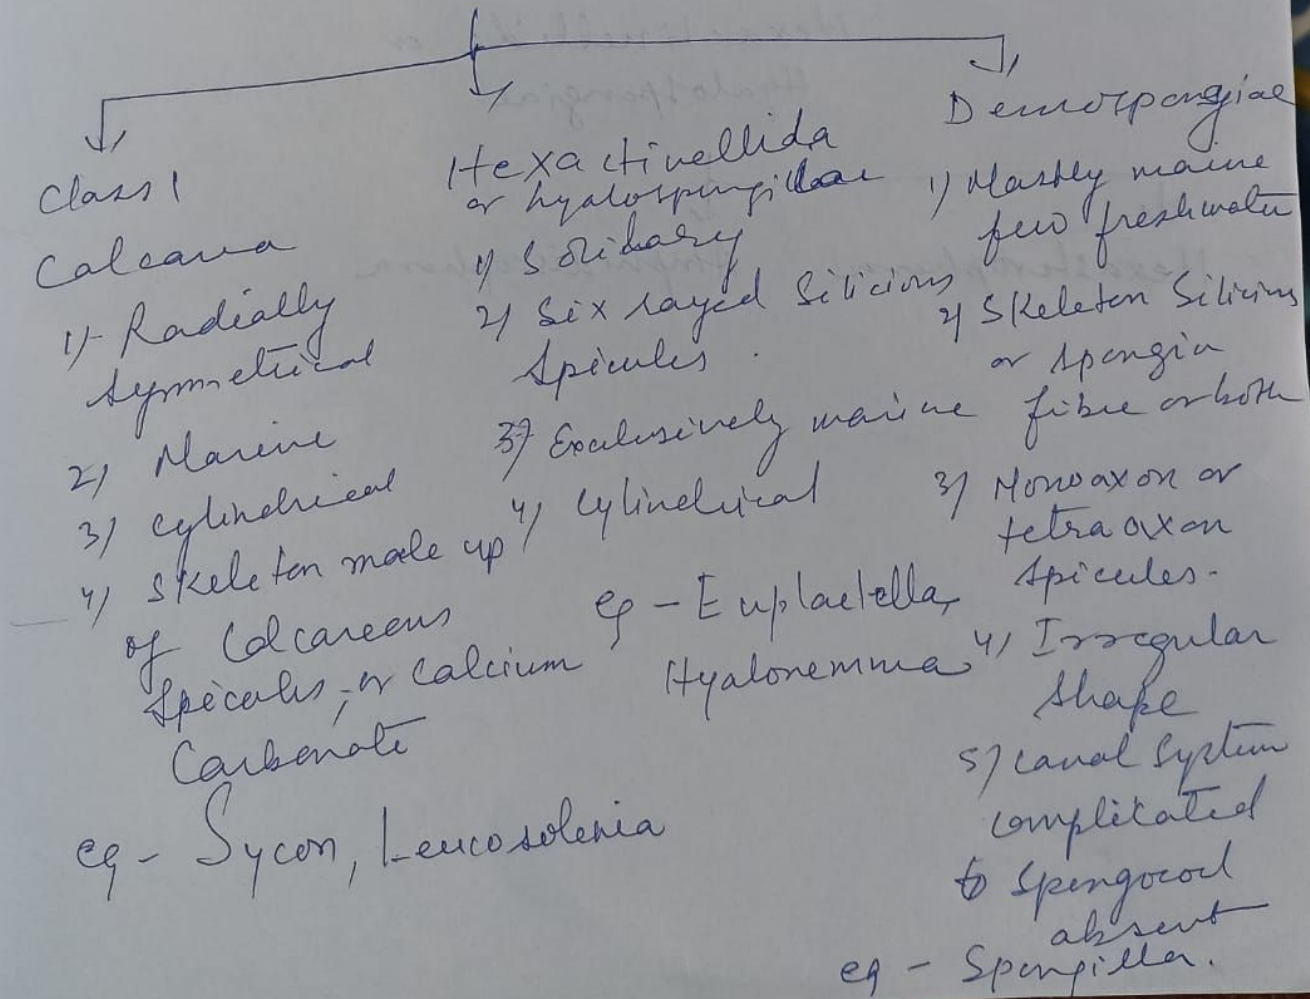 Class 1
Calcarea
1) Radially
symmetrical
2) Marine
3) cylindrical
4) Skeleton made up
of Calcareous
Spicules, or Calcium
Carbonate
eg - Sycon, Leucosolenia
Hexactinellida
or hyalospongillae
1) Solitary
2) Six rayed Silicious
Spicules.
3) Exclusively marine
4) Cylindrical
eg - Euplactella,
Hyalonemma
Demospongiae
1) Mostly marine
few freshwater
2) Skeleton Silicious
or spongin
fibre or both
3) Monoaxon or
tetra axon
spicules.
4) Irregular
shape
5) canal system
complicated
6 Spongocoel
absent
eg - Spongilla.